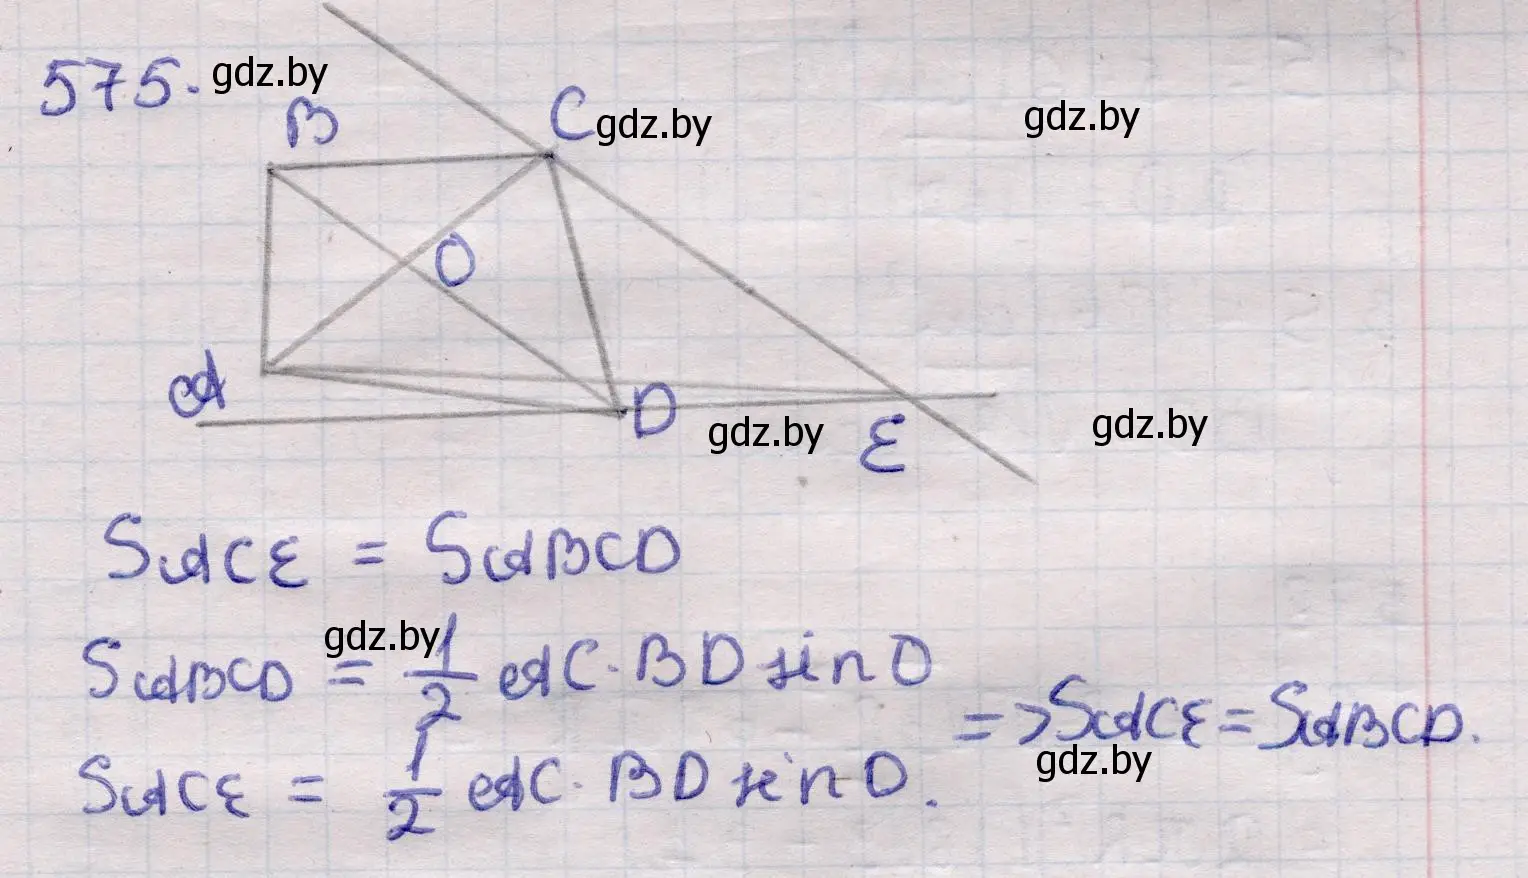 575. gdz.by
B
C gdz.by
gdz.by
O
A
D
gdz.by
E
gdz.by
S ACE = S ABCD
gdz.by
S ABCD = 1/2 AC · BD sin O
S ACE = 1/2 AC · BD sin O.
=> S ACE = S ABCD.
gdz.by